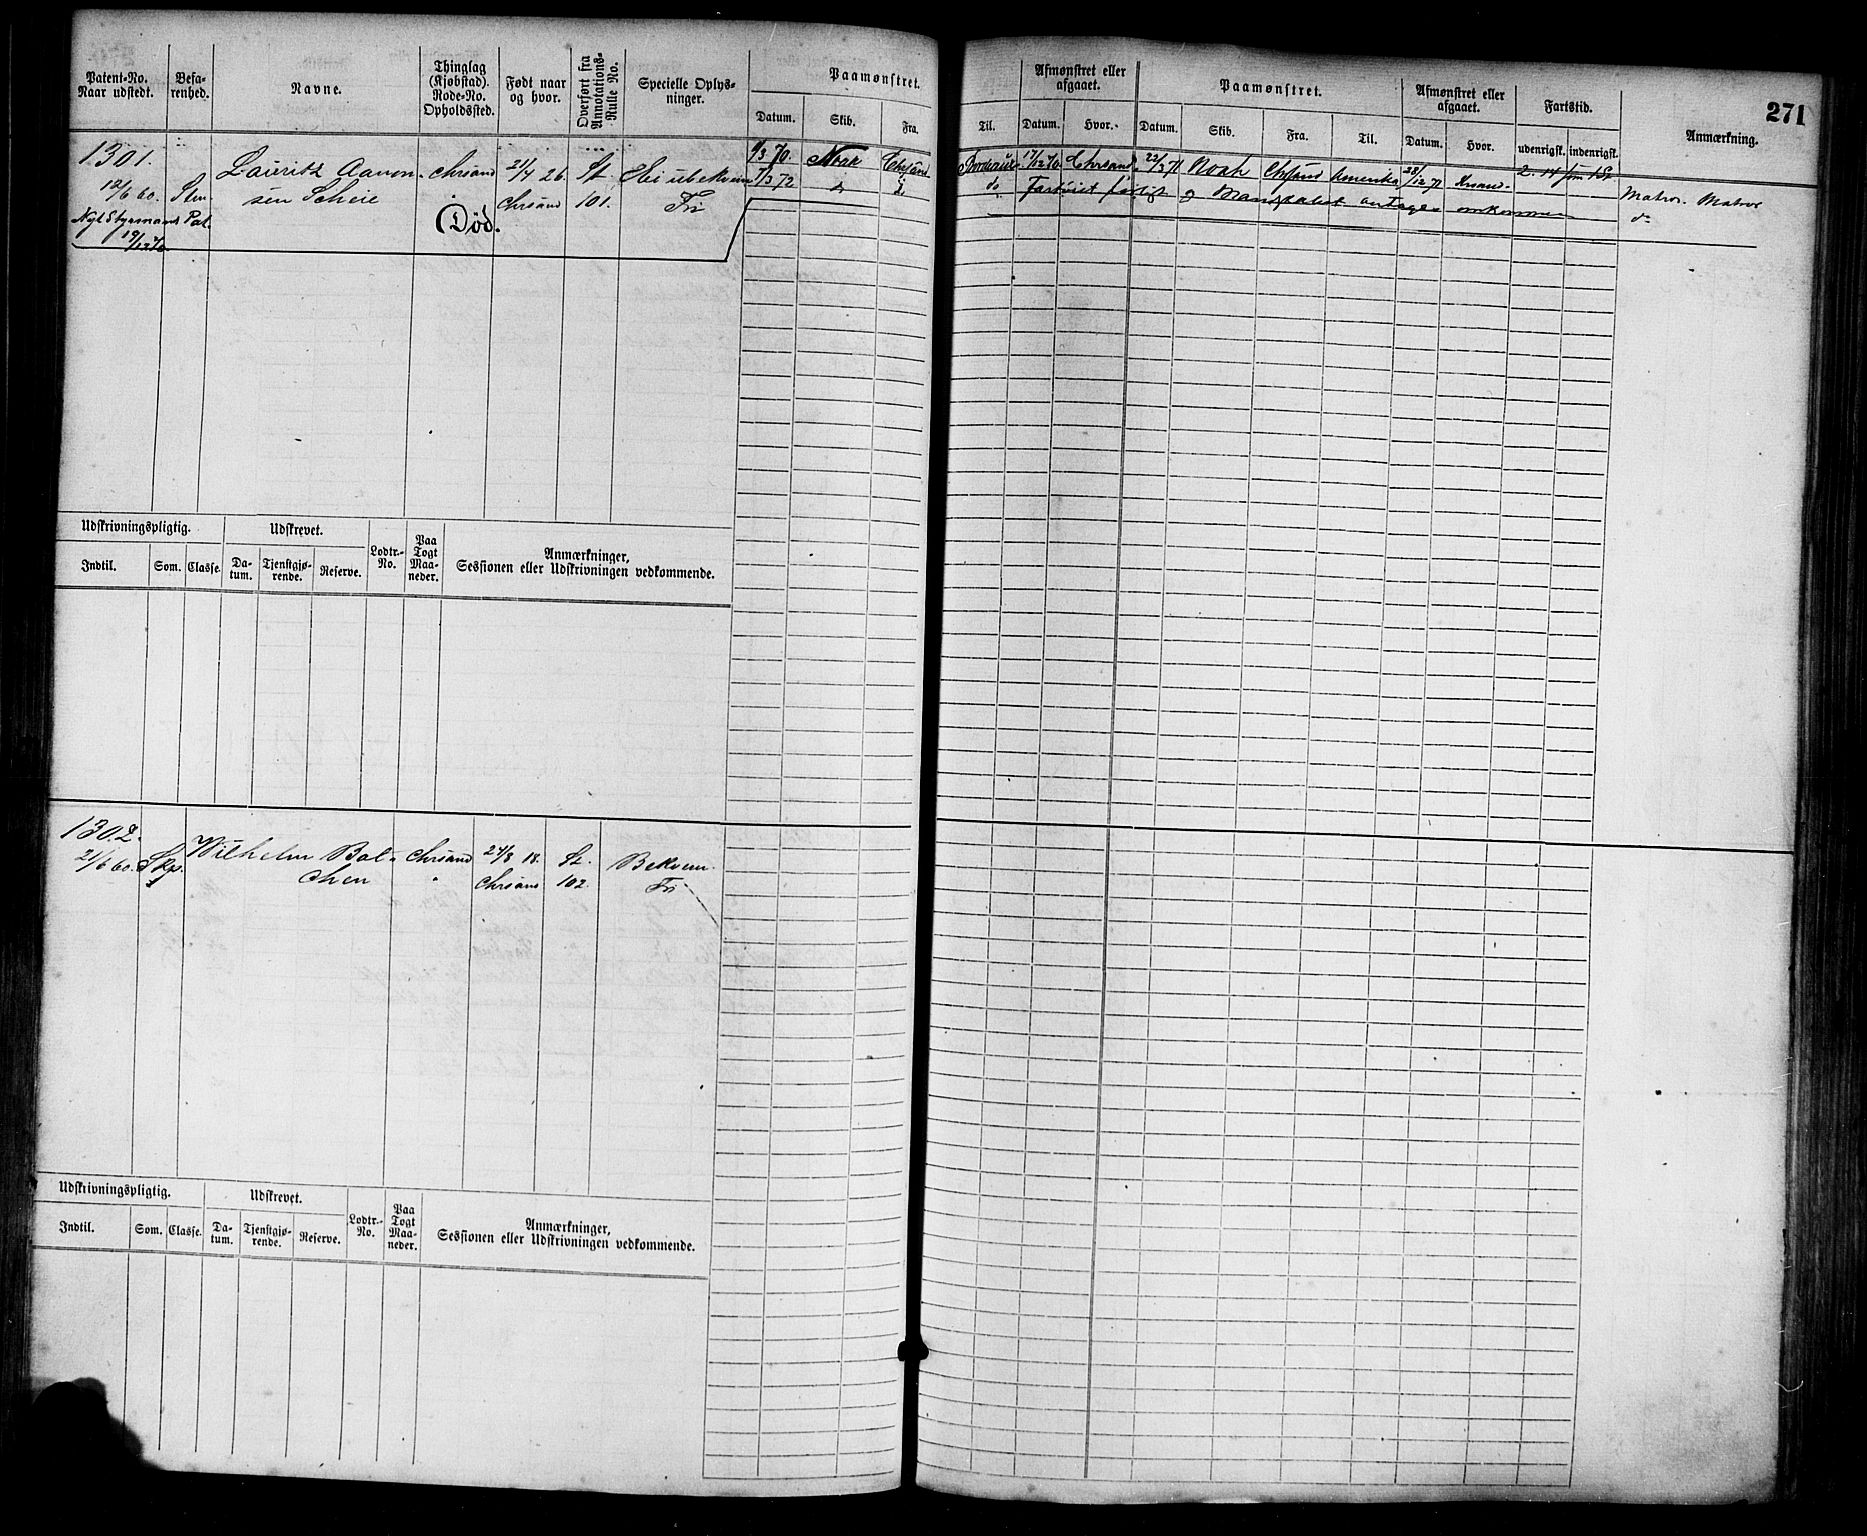 271
Patent-No. Naar udstedt.
Befarenhed.
Navne.
Thinglag (Kjøbstad). Rode-No. Opholdssted.
Født naar og hvor.
Overført fra Annotations-Rulle No.
Specielle Oplysninger.
Paamønstret.
Datum. Skib. Fra. Til.
Afmønstret eller afgaaet.
Datum. Hvor.
Paamønstret.
Datum. Skib. Fra. Til.
Afmønstret eller afgaaet.
Datum. Hvor.
Fartstid.
udenrigsk. indenrigsk.
Anmærkning.
1301. Lauritz Aanon- Chrsand 21/4 26. St. Ei ubekvem
12/6 60. Stm. sen Scheie Chrsand 101. Fri
Nyt Styrmands Pat. Død.
19/12 70
/3 70. Noah Chrsand Bordeaux 17/12 70 Chrsand 22/3 71 Noah Chrsand Amerika 28/12 71 Krsand
7/3 72 do do do Fartøiet forlist og Mandskabet antages omkommen
Matros. Matros
do
Udskrivningspligtig.
Indtil. Som. Classe.
Udskrevet.
Datum. Tjenstgjørende. Reserve.
Lodtr.-No.
Paa Togt Maaneder.
Anmærkninger,
Sessionen eller Udskrivningen vedkommende.
1302. Wilhelm Bal- Chrsand 24/8 18. St. Bekvem.
21/6 60. Skp. chen " Chrsand 102. Fri
Udskrivningspligtig.
Indtil. Som. Classe.
Udskrevet.
Datum. Tjenstgjørende. Reserve.
Lodtr.-No.
Paa Togt Maaneder.
Anmærkninger,
Sessionen eller Udskrivningen vedkommende.